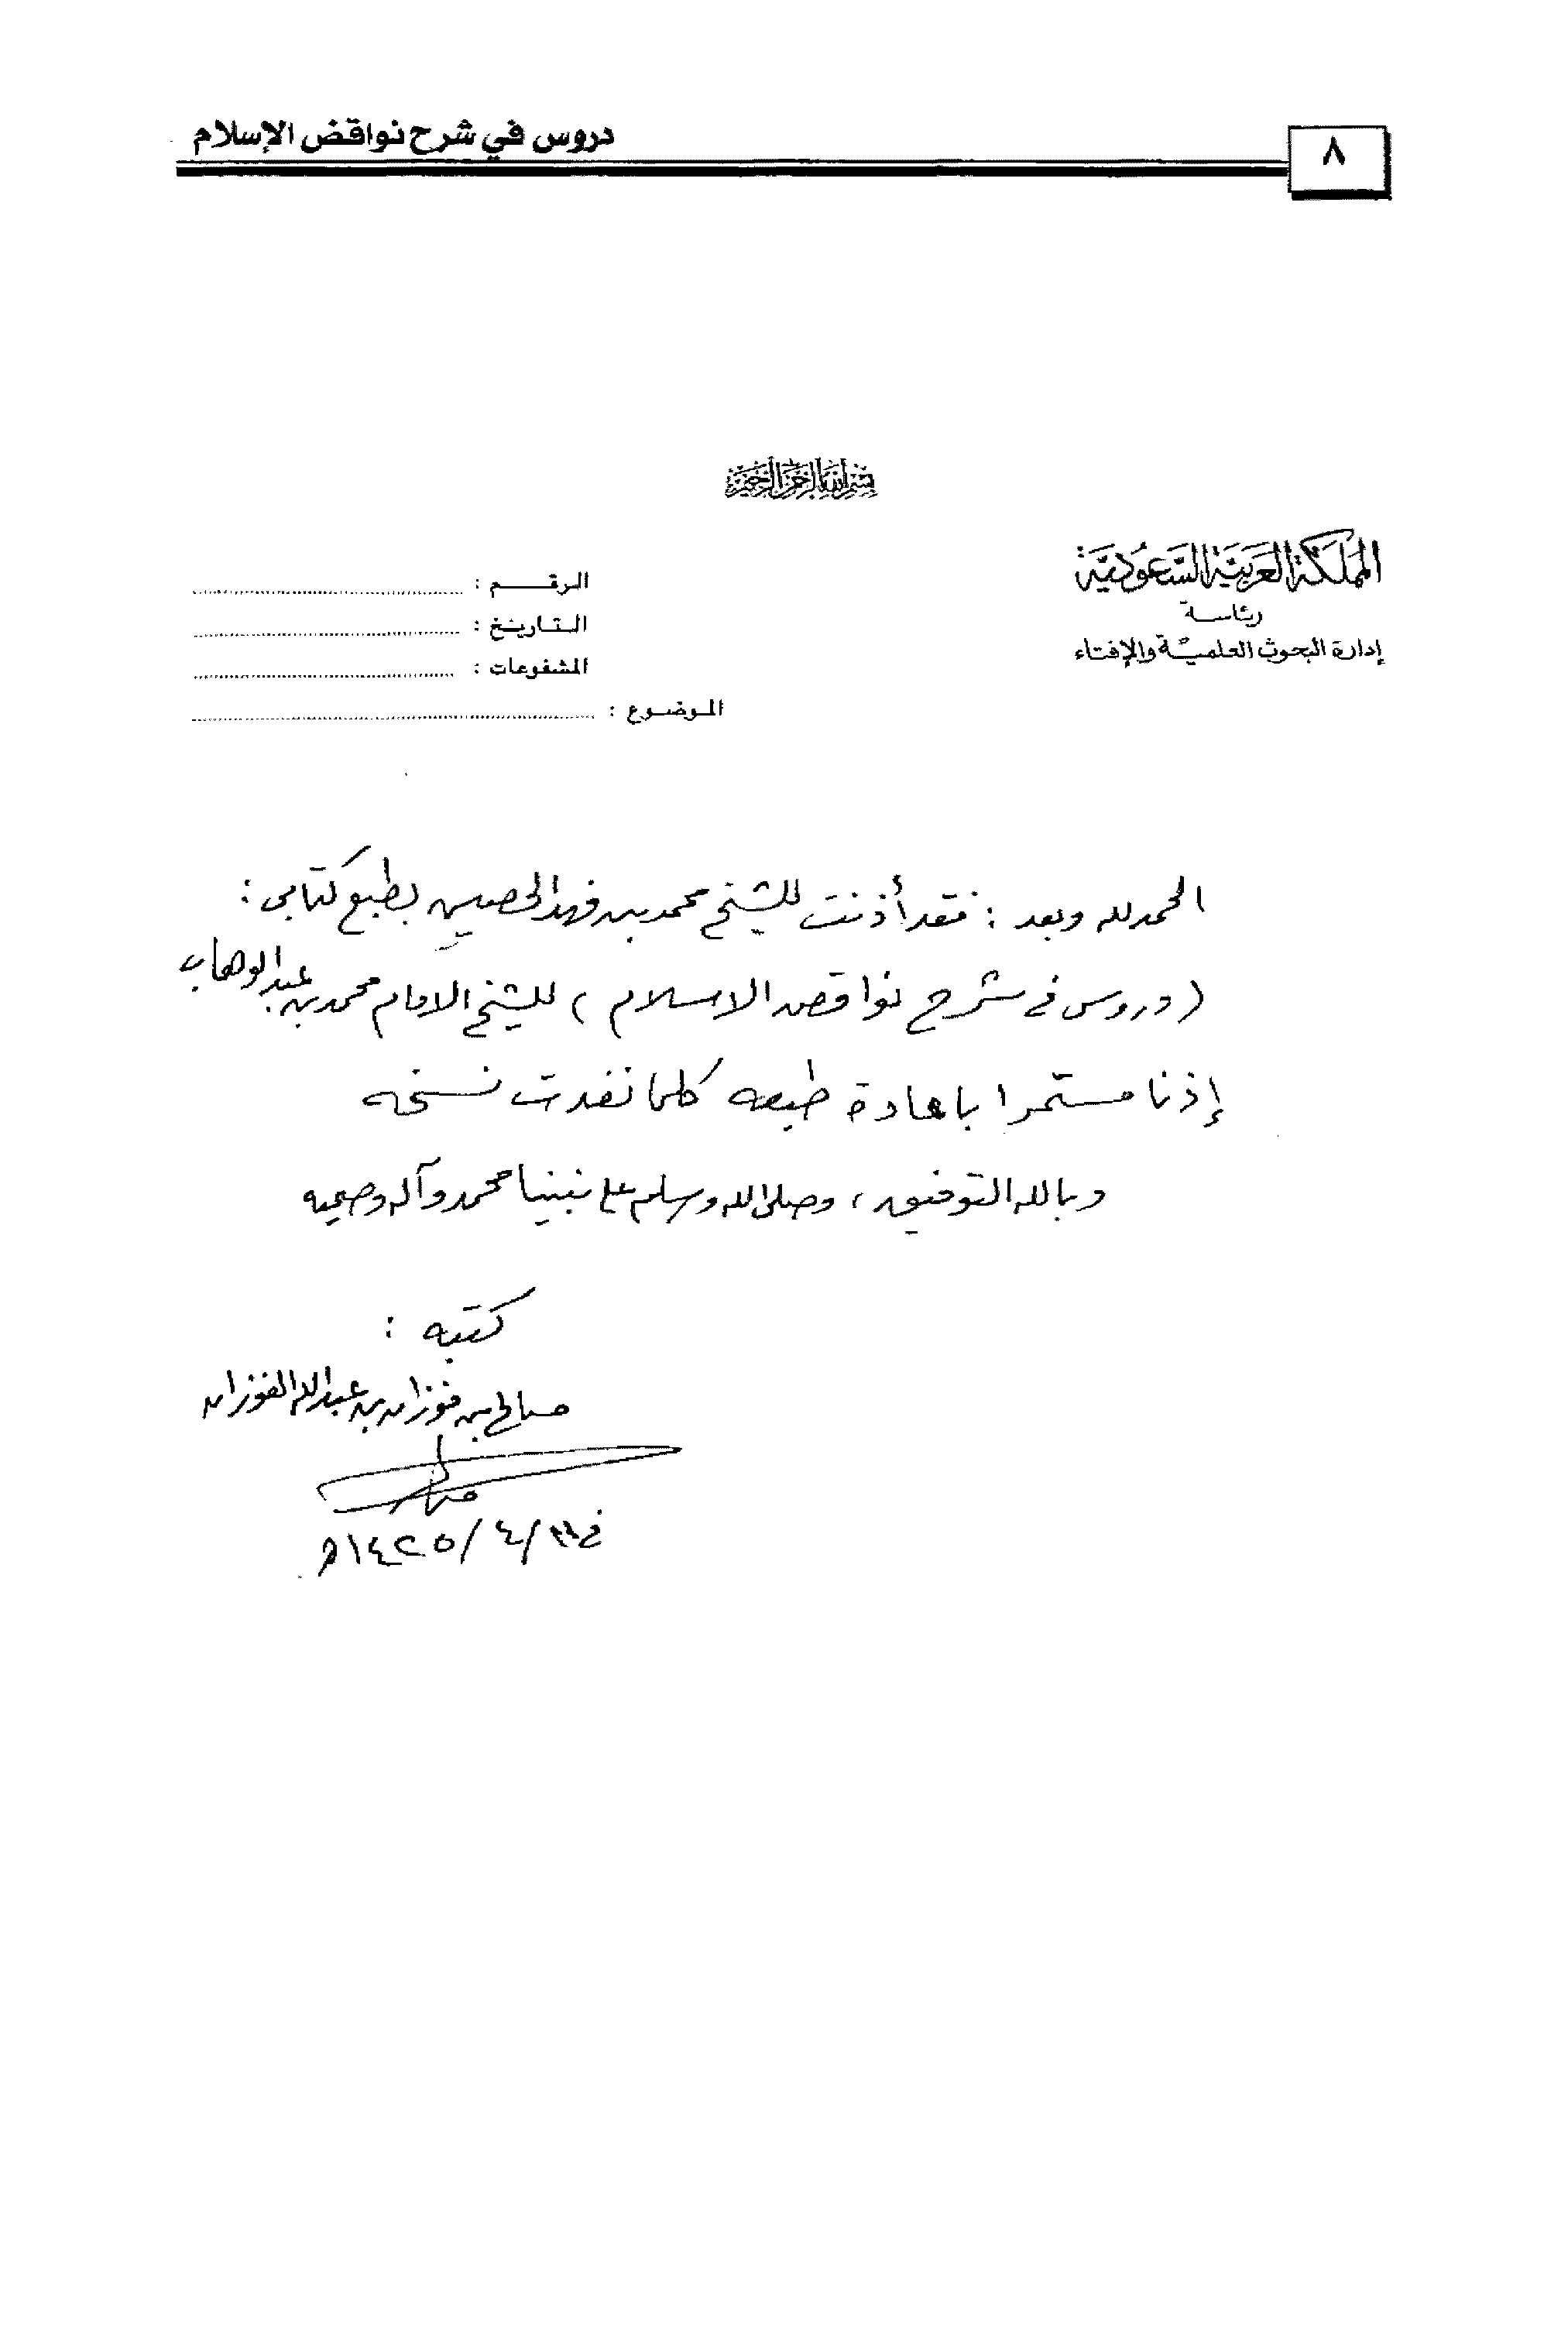 دروس في شرح نواقض الإسلام
٨
بسم الله الرحمن الرحيم
المملكة العربية السعودية
رئاسة
إدارة البحوث العلمية والإفتاء
الرقـــم :
التاريخ :
المشفوعات :
الموضوع :
الحمد لله وبعد : فقد أذنت للشيخ محمد بن فهد الحصين بطبع كتابي :
( دروس في شرح نواقض الاسلام ) للشيخ الامام محمد بن عبد الوهاب
إذنا مستمرا باعادة طبعه كلما نفدت نسخه
وبالله التوفيق ، وصلى الله وسلم على نبينا محمد وآله وصحبه
كتبه :
صالح بن فوزان بن عبد الله الفوزان
في /٤/١٤٢٥هـ